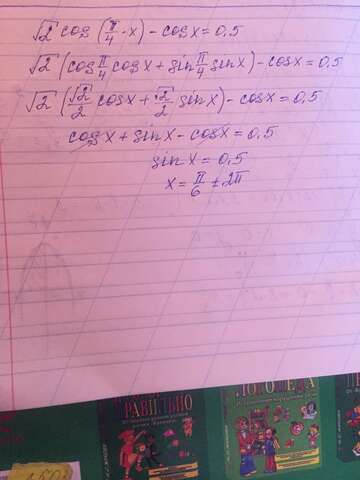 √2 cos (π/4 - x) - cos x = 0,5
√2 (cos π/4 cos x + sin π/4 sin x) - cos x = 0,5
√2 (√2/2 cos x + √2/2 sin x) - cos x = 0,5
cos x + sin x - cos x = 0,5
sin x = 0,5
x = π/6 ± 2π
ПРАВИЛЬНО
ЛОГОПЕДА